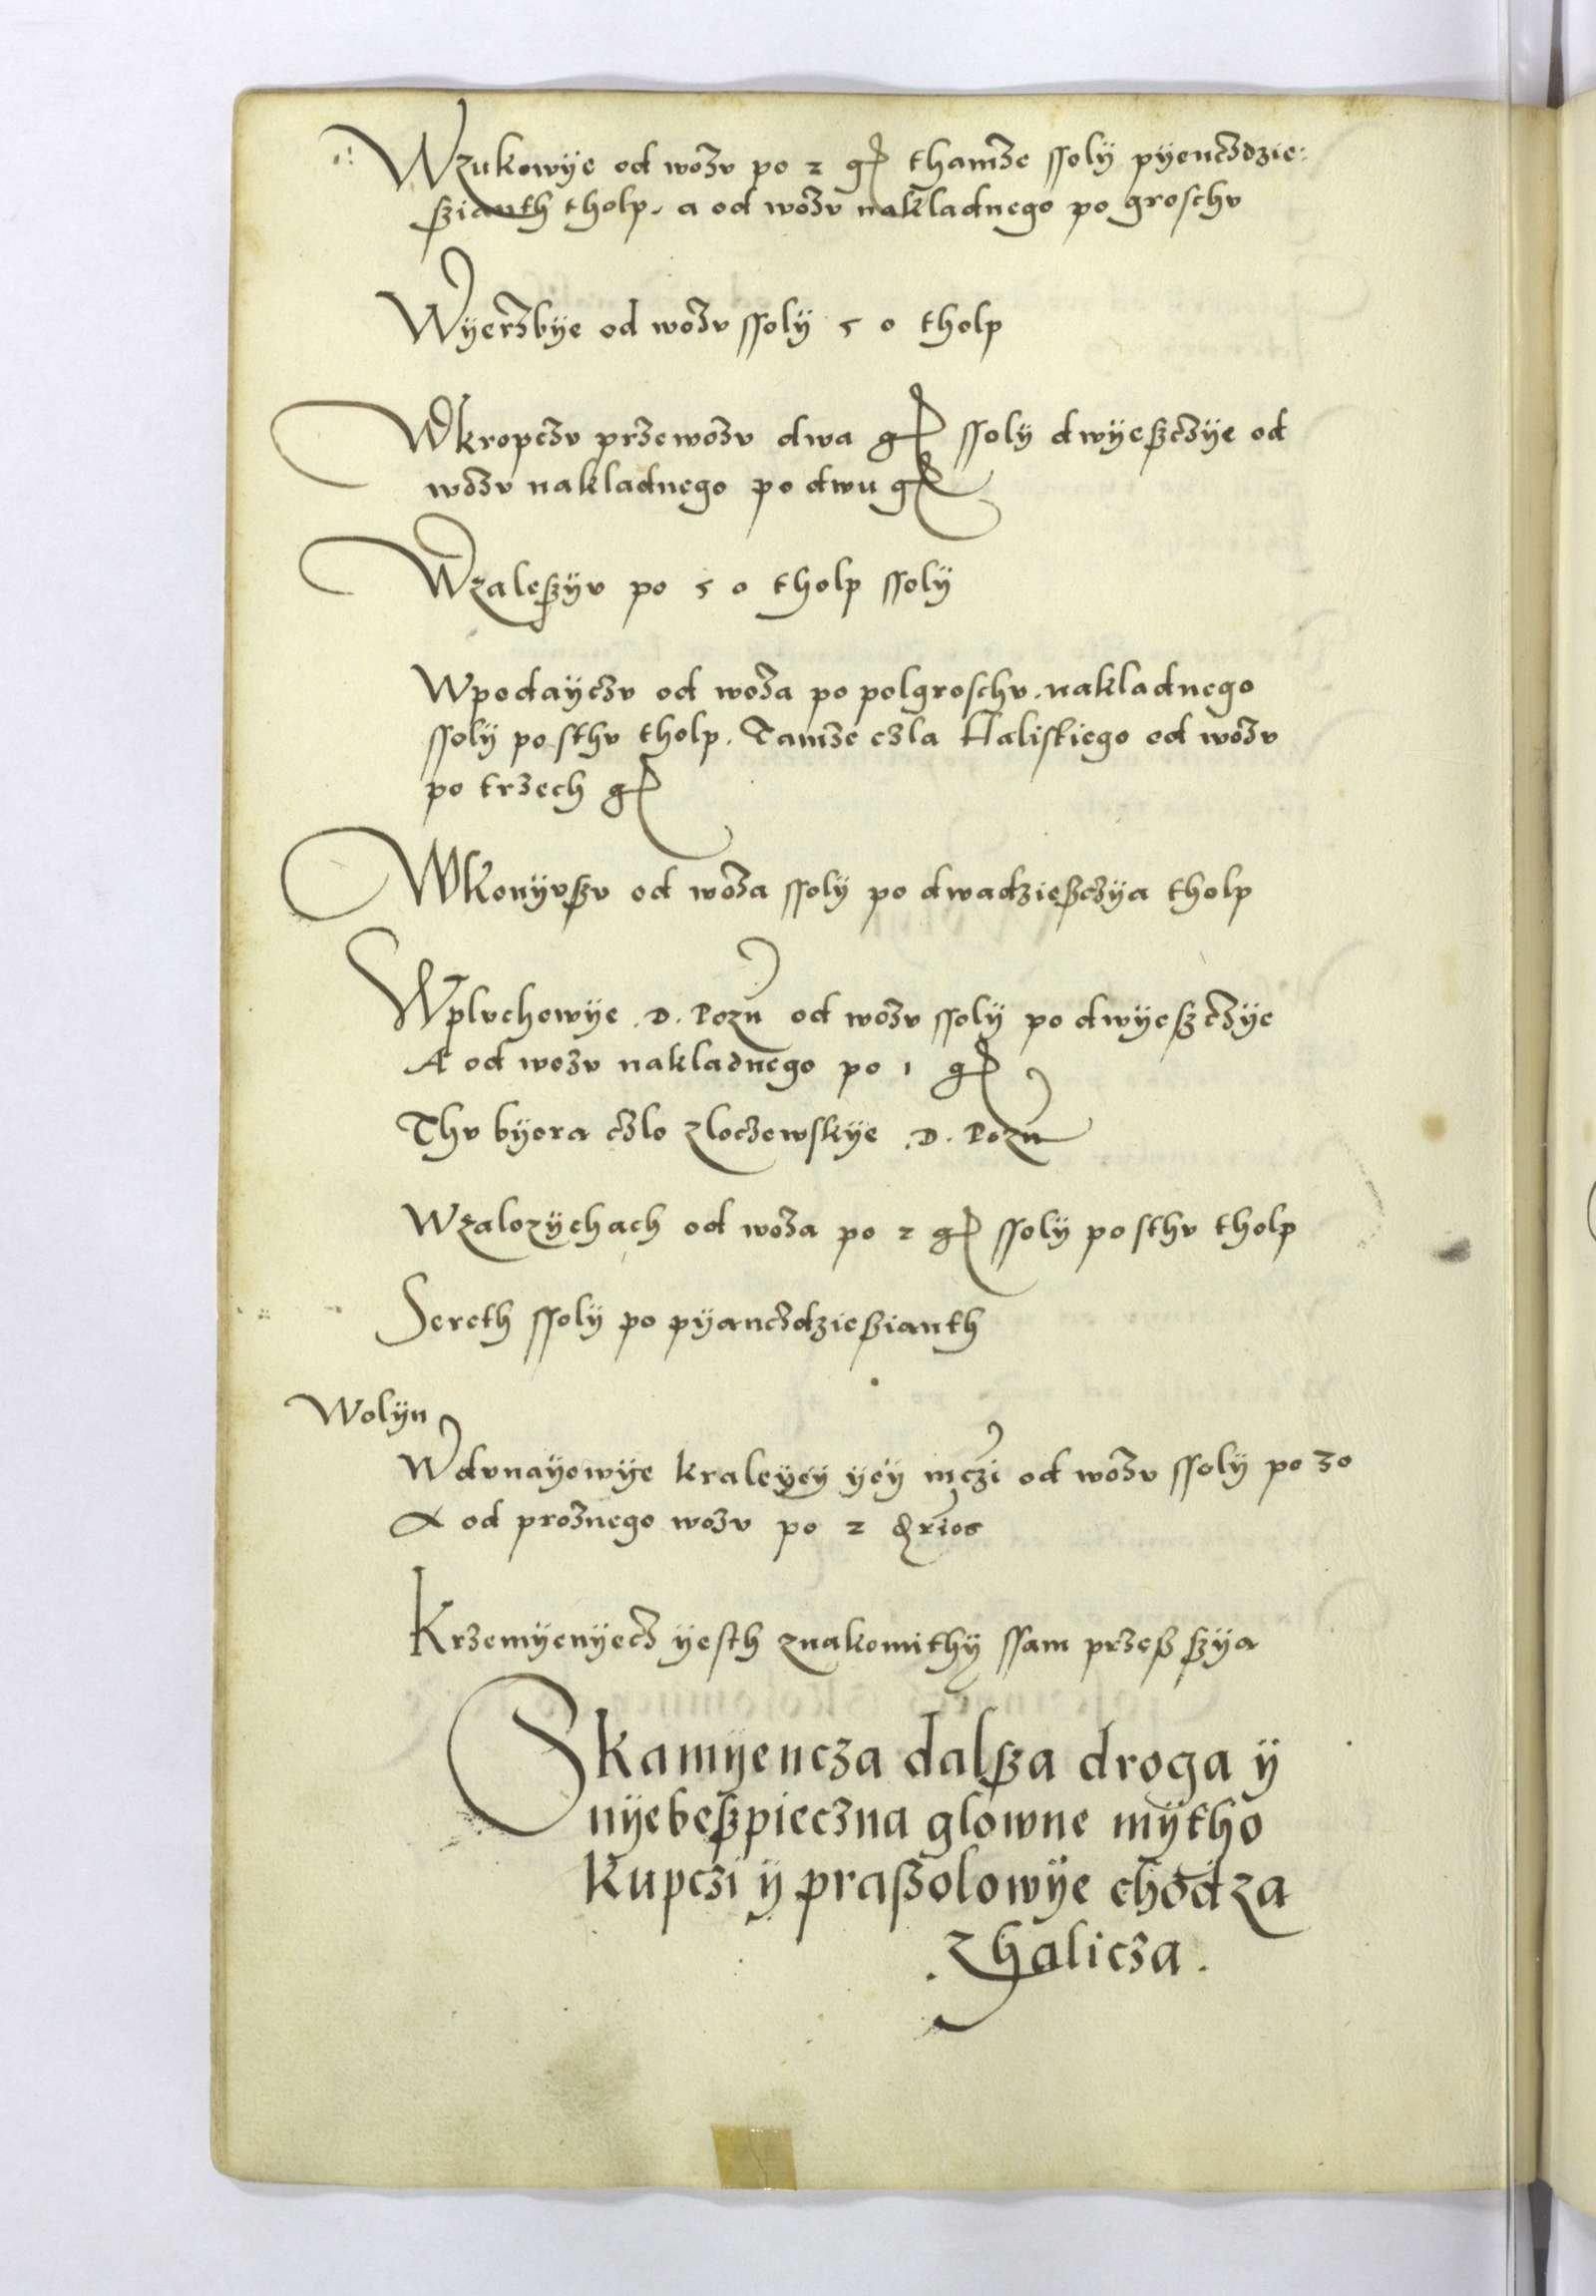 Wzukowÿe od wozv po 2 gr thamze ssolÿ pÿenczdzie:
szianth tholp. a od wozv nakladnego po groschv
Wÿerzbÿe od wozv ssolÿ 5 0 tholp
Wkropczv przewozv dwa gr ssolÿ dwÿesczÿe od
wozv nakladnego po dwu gr
Wzaleszÿv po 5 0 tholp ssolÿ
Wpodaÿczv od woza po polgroschv. nakladnego
ssolÿ po sthv tholp. Tamze czla Haliskiego od wozv
po trzech gr
Wkonÿvszv od woza ssolÿ po dwadziesczÿa tholp
Wplvchowÿe .D. Pozn od wozv ssolÿ po dwÿesczÿe
A od wozv nakladnego po 1 gr
Thv bÿera czlo zloczewskÿe .D. Pozn
Wzalozÿchach od woza po 2 gr ssolÿ po sthv tholp
Sereth ssolÿ po pÿanczdzieszianth
Wolÿn
Wdvnaÿowÿe kraleÿeÿ ÿeÿ mczi od wozv ssolÿ po 30
A od proznego wozv po 2
Krzemÿenÿecz ÿesth znakomithÿ ssam przesz szÿa
Skamÿencza dalsza droga ÿ
nÿebeszpieczna glowne mÿtho
kupczi ÿ praszolowÿe chodza
zhalicza.